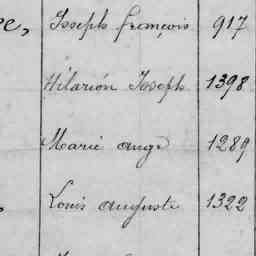 Joseph françois 917
Hilarion Joseph 1398
Marie ange 1289
Louis auguste 1322